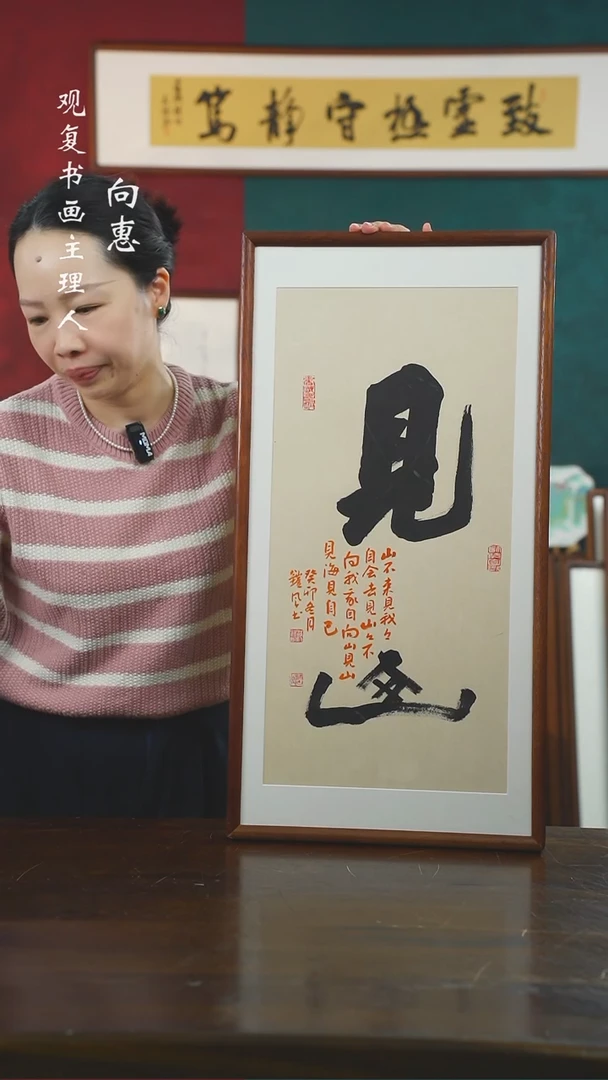 致虚極守静篤
向惠
观复书画主理人
見山
山不来見我々
自会去見山々不
向我我自向山見山
見海見自己
癸卯冬月